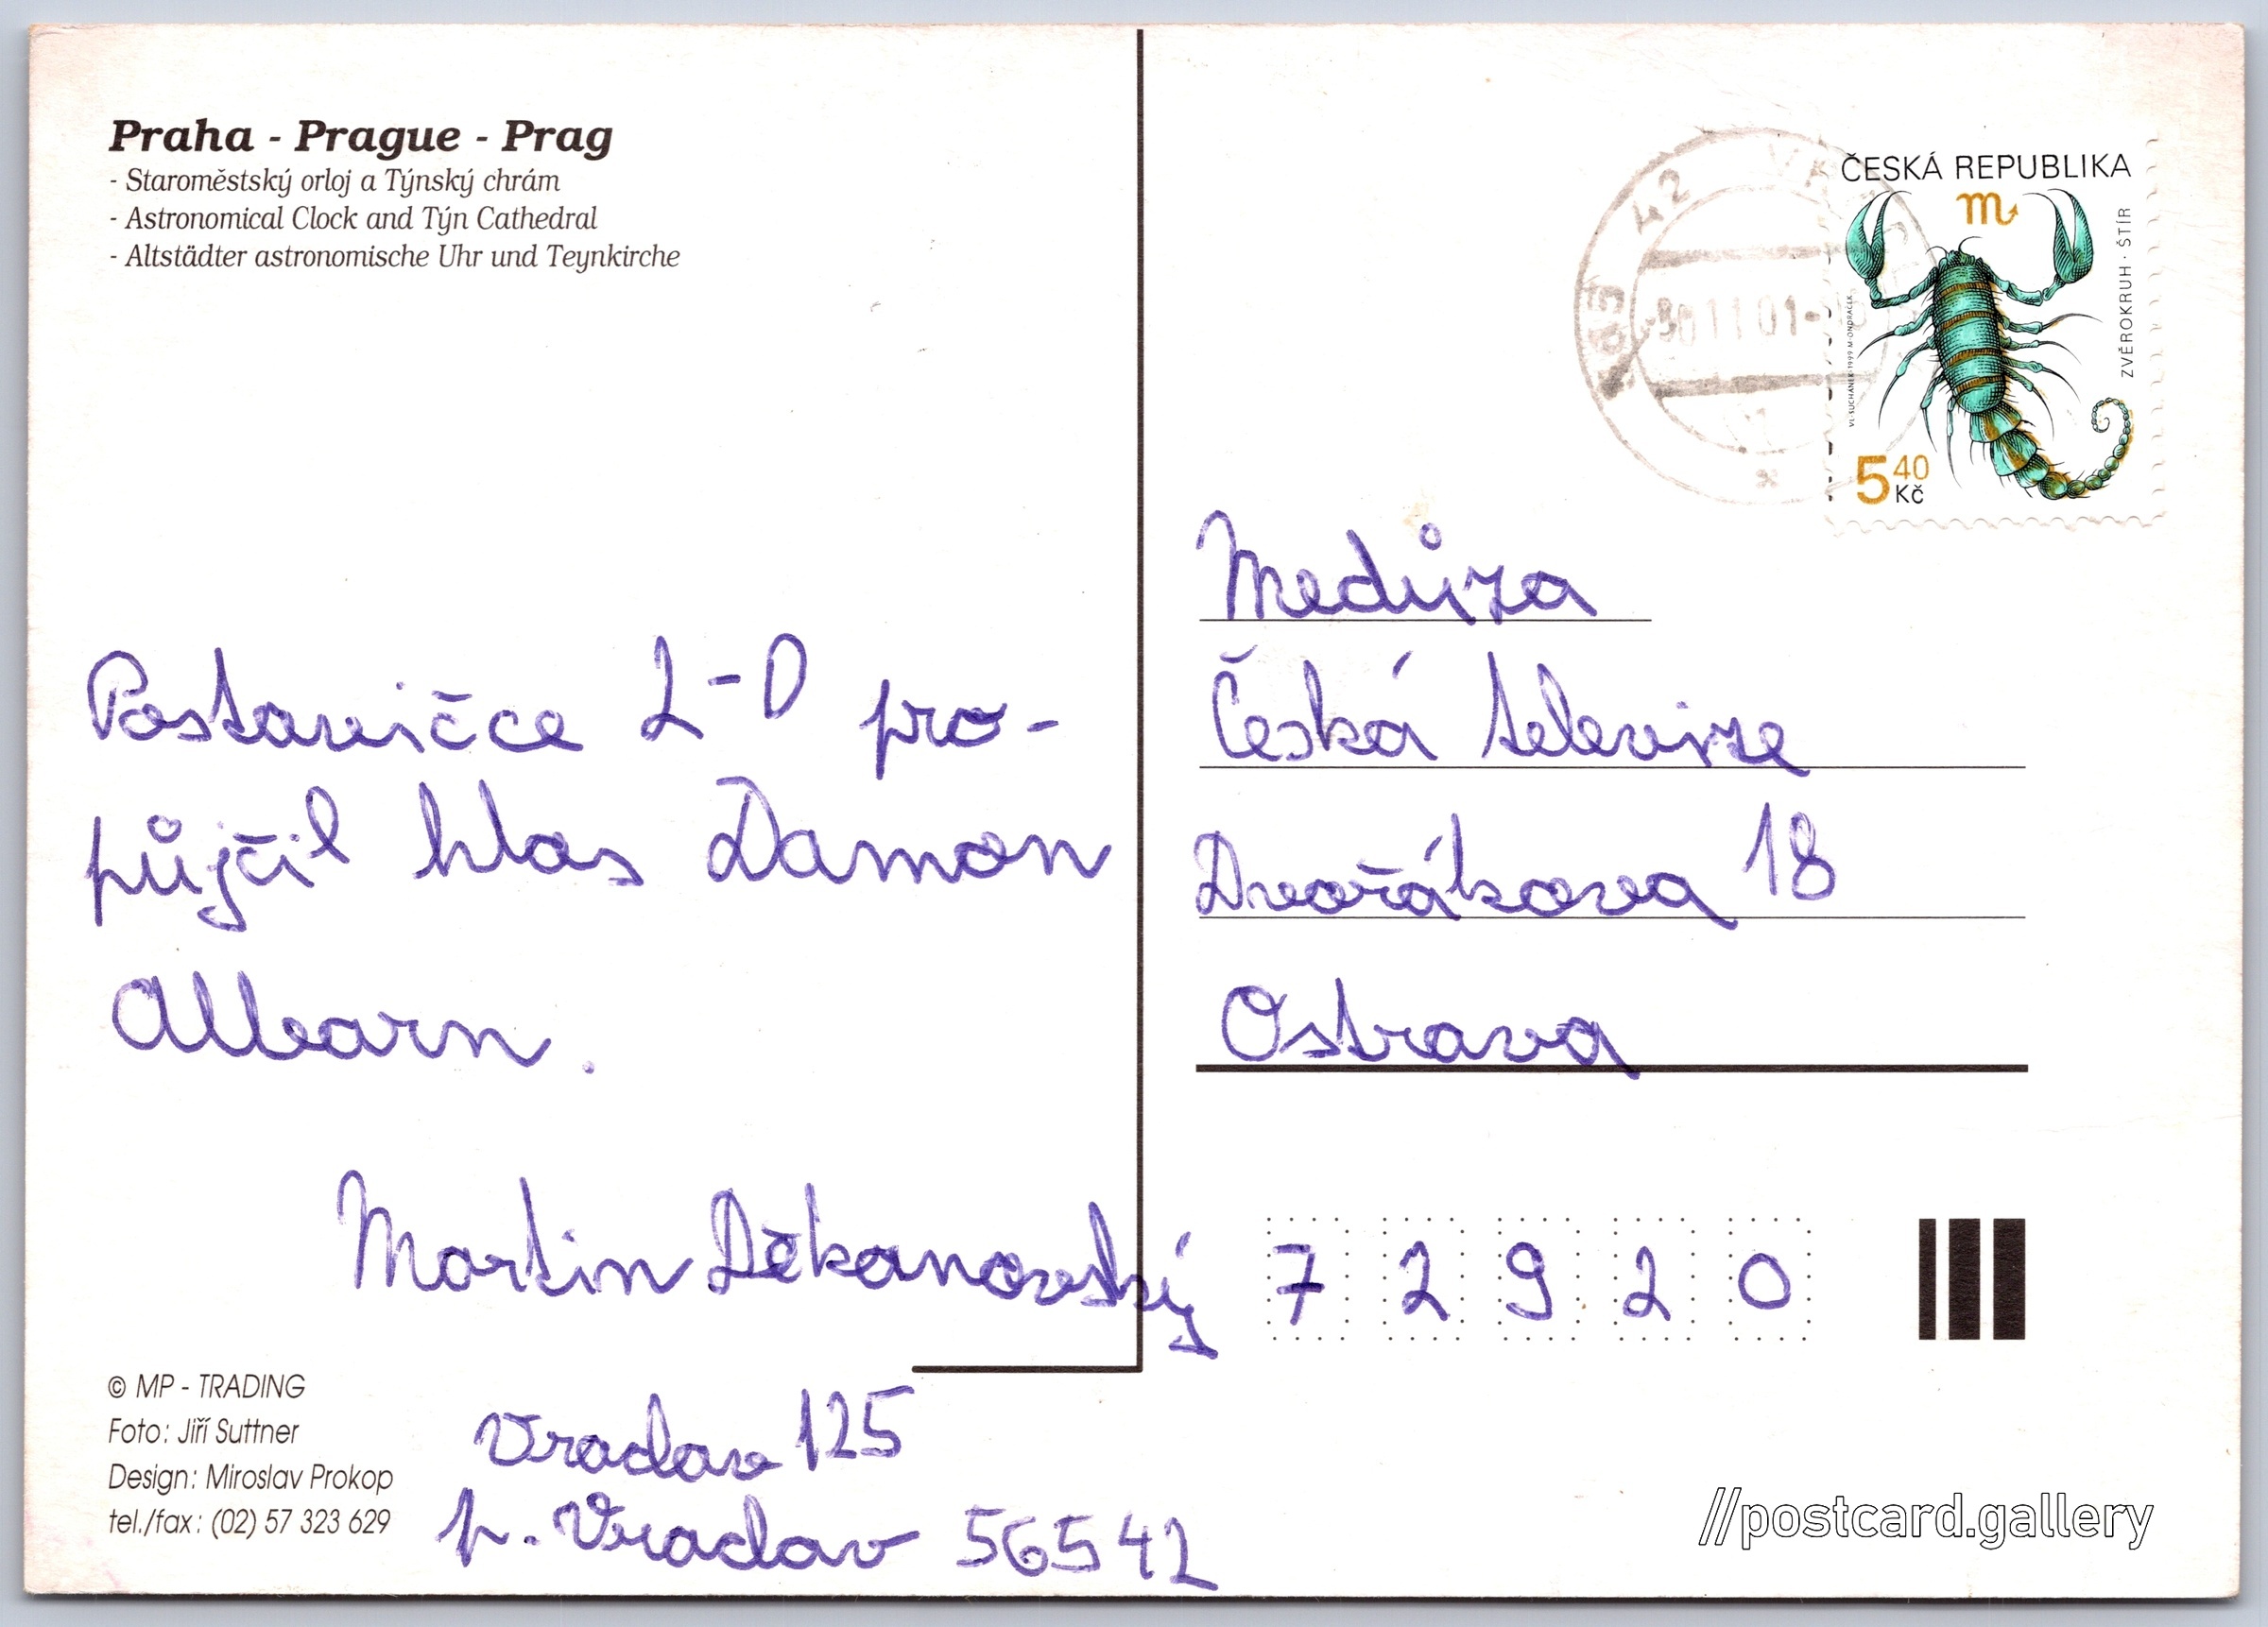 Praha - Prague - Prag
- Staroměstský orloj a Týnský chrám
- Astronomical Clock and Týn Cathedral
- Altstädter astronomische Uhr und Teynkirche
Postavičce 2-D pro-
půjčil hlas Damon
Albarn.
Martin Děkanovský
Vraclav 125
p. Vraclav 565 42
© MP - TRADING
Foto: Jiří Suttner
Design: Miroslav Prokop
tel./fax: (02) 57 323 629
ČESKÁ REPUBLIKA
ZVĚROKRUH · ŠTÍR
5 40
Kč
42
30 11 01
Medůza
Česká televize
Dvořákova 18
Ostrava
7 2 9 2 0
//postcard.gallery